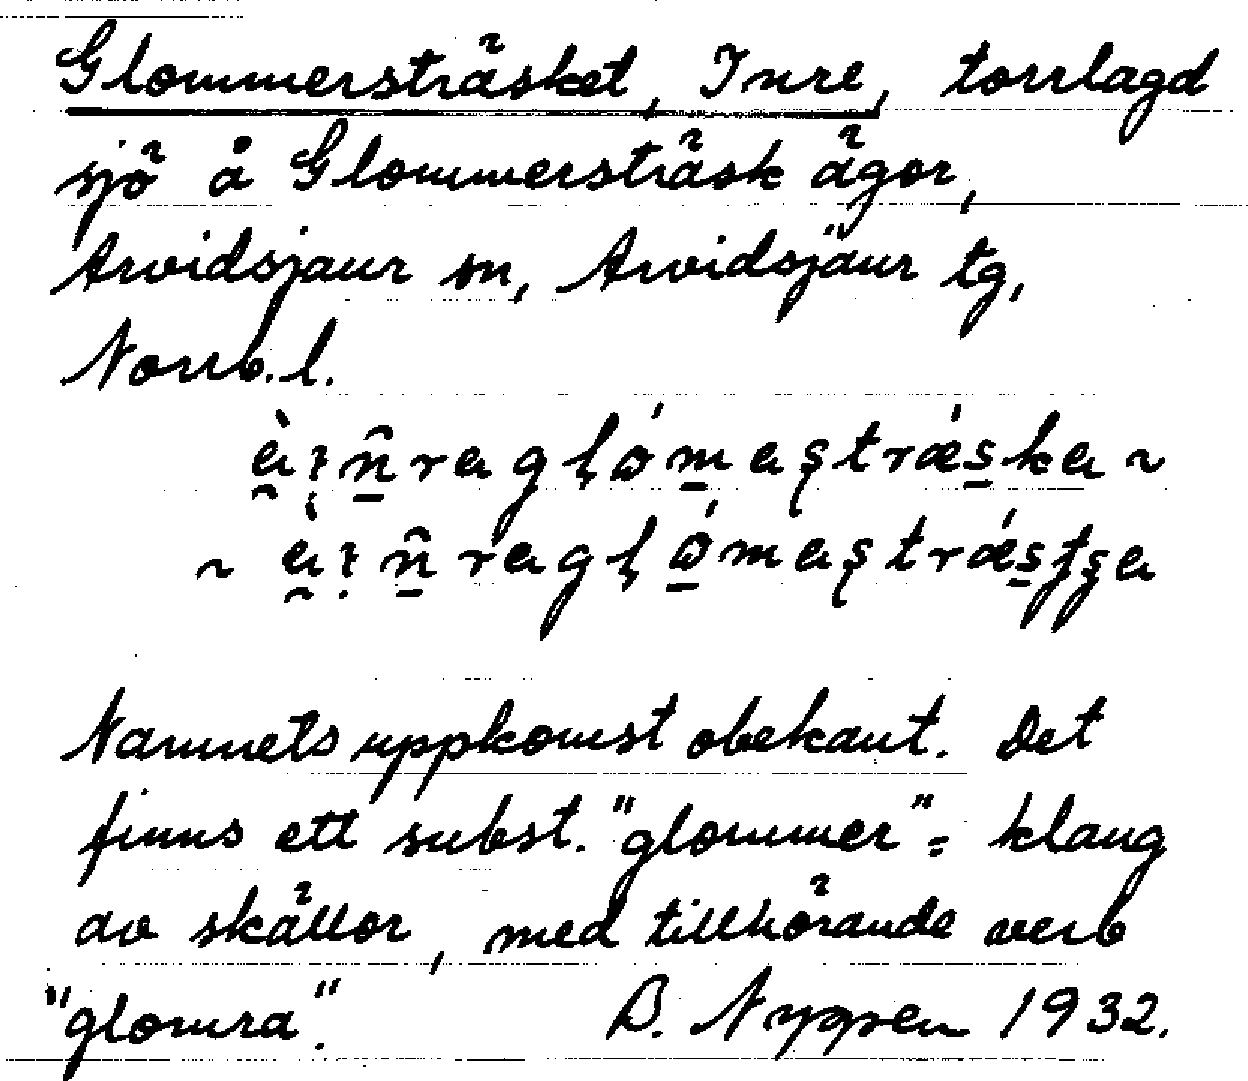 Glommersträsket, Inre, torrlagd
sjö å Glommersträsk ägor,
Arvidsjaur sn, Arvidsjaur tg,
Norrb. l.
Namnets uppkomst obekant. Det
finns ett subst. "glommer" = klang
av skällor, med tillhörande verb
"glomra". B. Nyppen 1932.